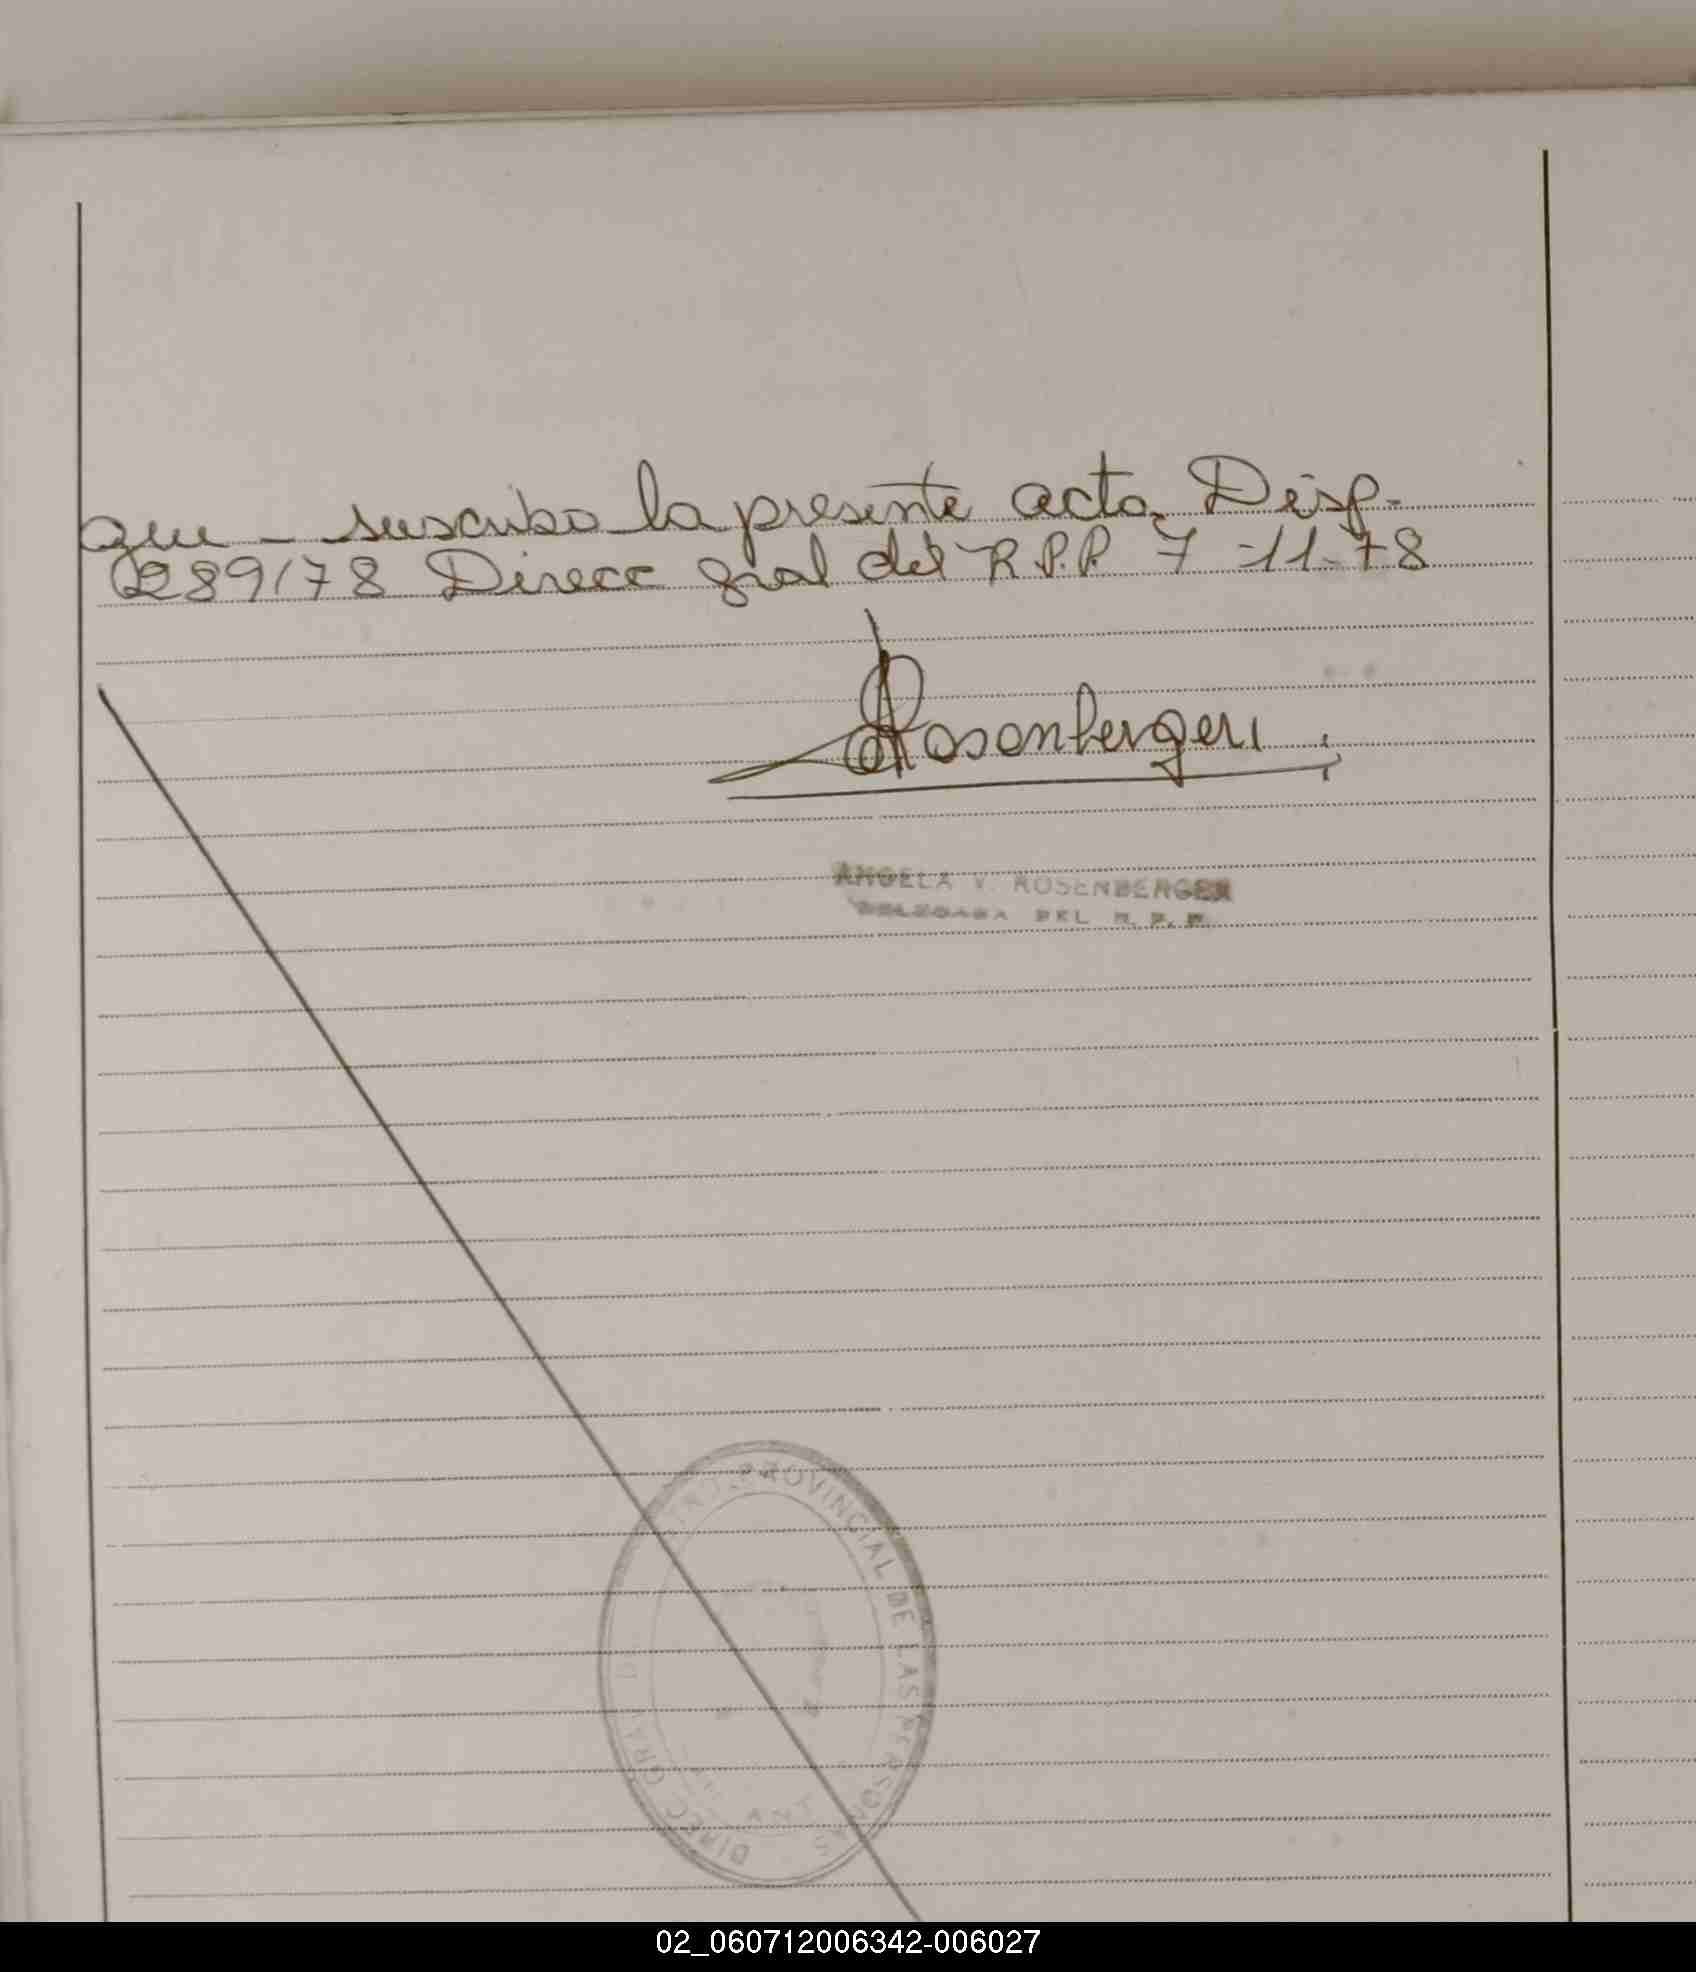 que - suscribo la presente acta. Disp.
289/78 Direcc gral del R.P.P. 7-11-78
Rosenberger
ANGELA V. ROSENBERGER
DELEGADA DEL R. P. P.
DIREC. GRAL. PROVINCIAL DE LAS PERSONAS
02_060712006342-006027